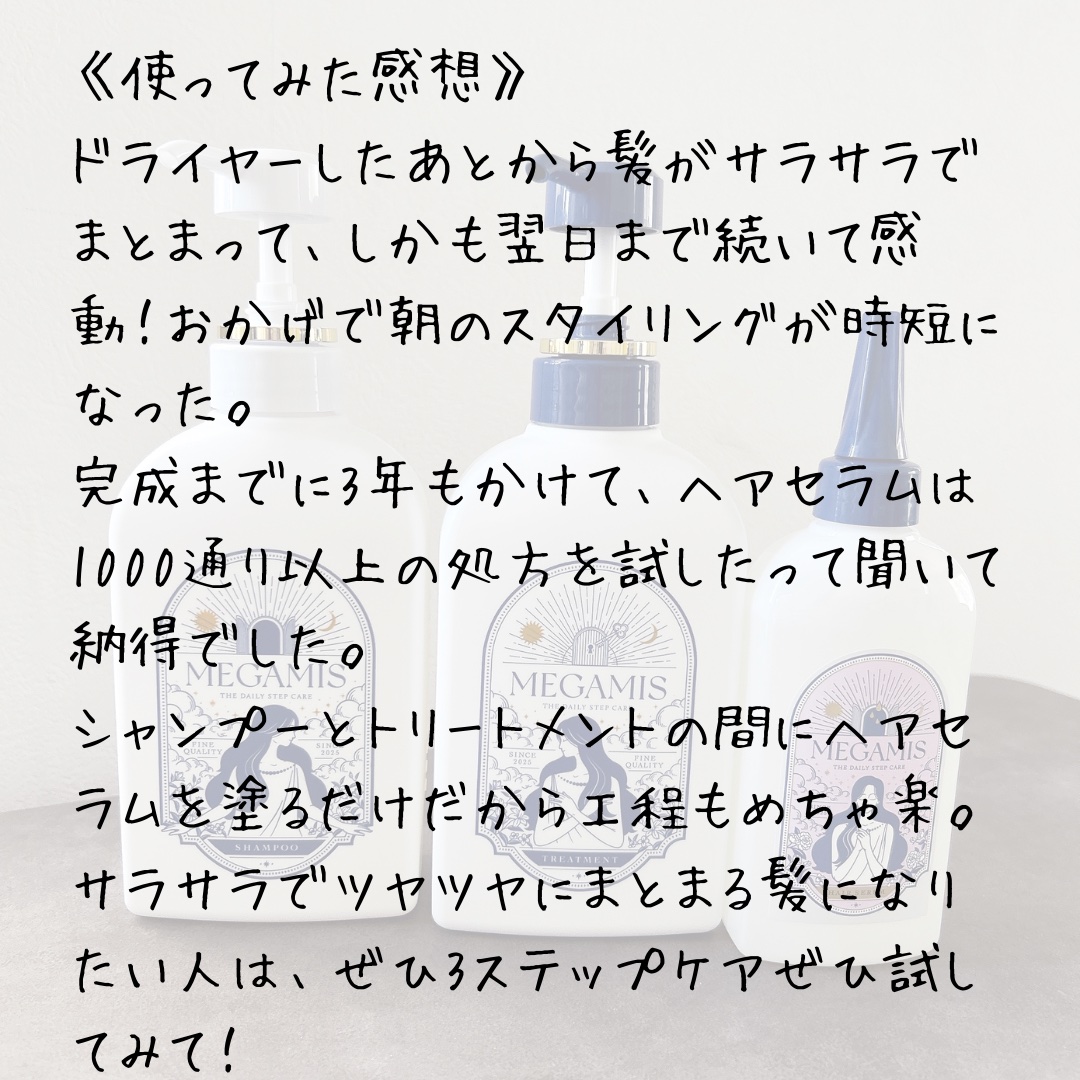 《使ってみた感想》
ドライヤーしたあとから髪がサラサラで
まとまって、しかも翌日まで続いて感
動！おかげで朝のスタイリングが時短に
なった。
完成までに3年もかけて、ヘアセラムは
1000通り以上の処方を試したって聞いて
納得でした。
シャンプーとトリートメントの間にヘアセ
ラムを塗るだけだから工程もめちゃ楽。
サラサラでツヤツヤにまとまる髪になり
たい人は、ぜひ3ステップケアぜひ試し
てみて！
MEGAMIS
THE DAILY STEP CARE
FINE QUALITY
SINCE 2025
SHAMPOO
MEGAMIS
THE DAILY STEP CARE
SINCE 2025
FINE QUALITY
TREATMENT
MEGAMIS
THE DAILY STEP CARE